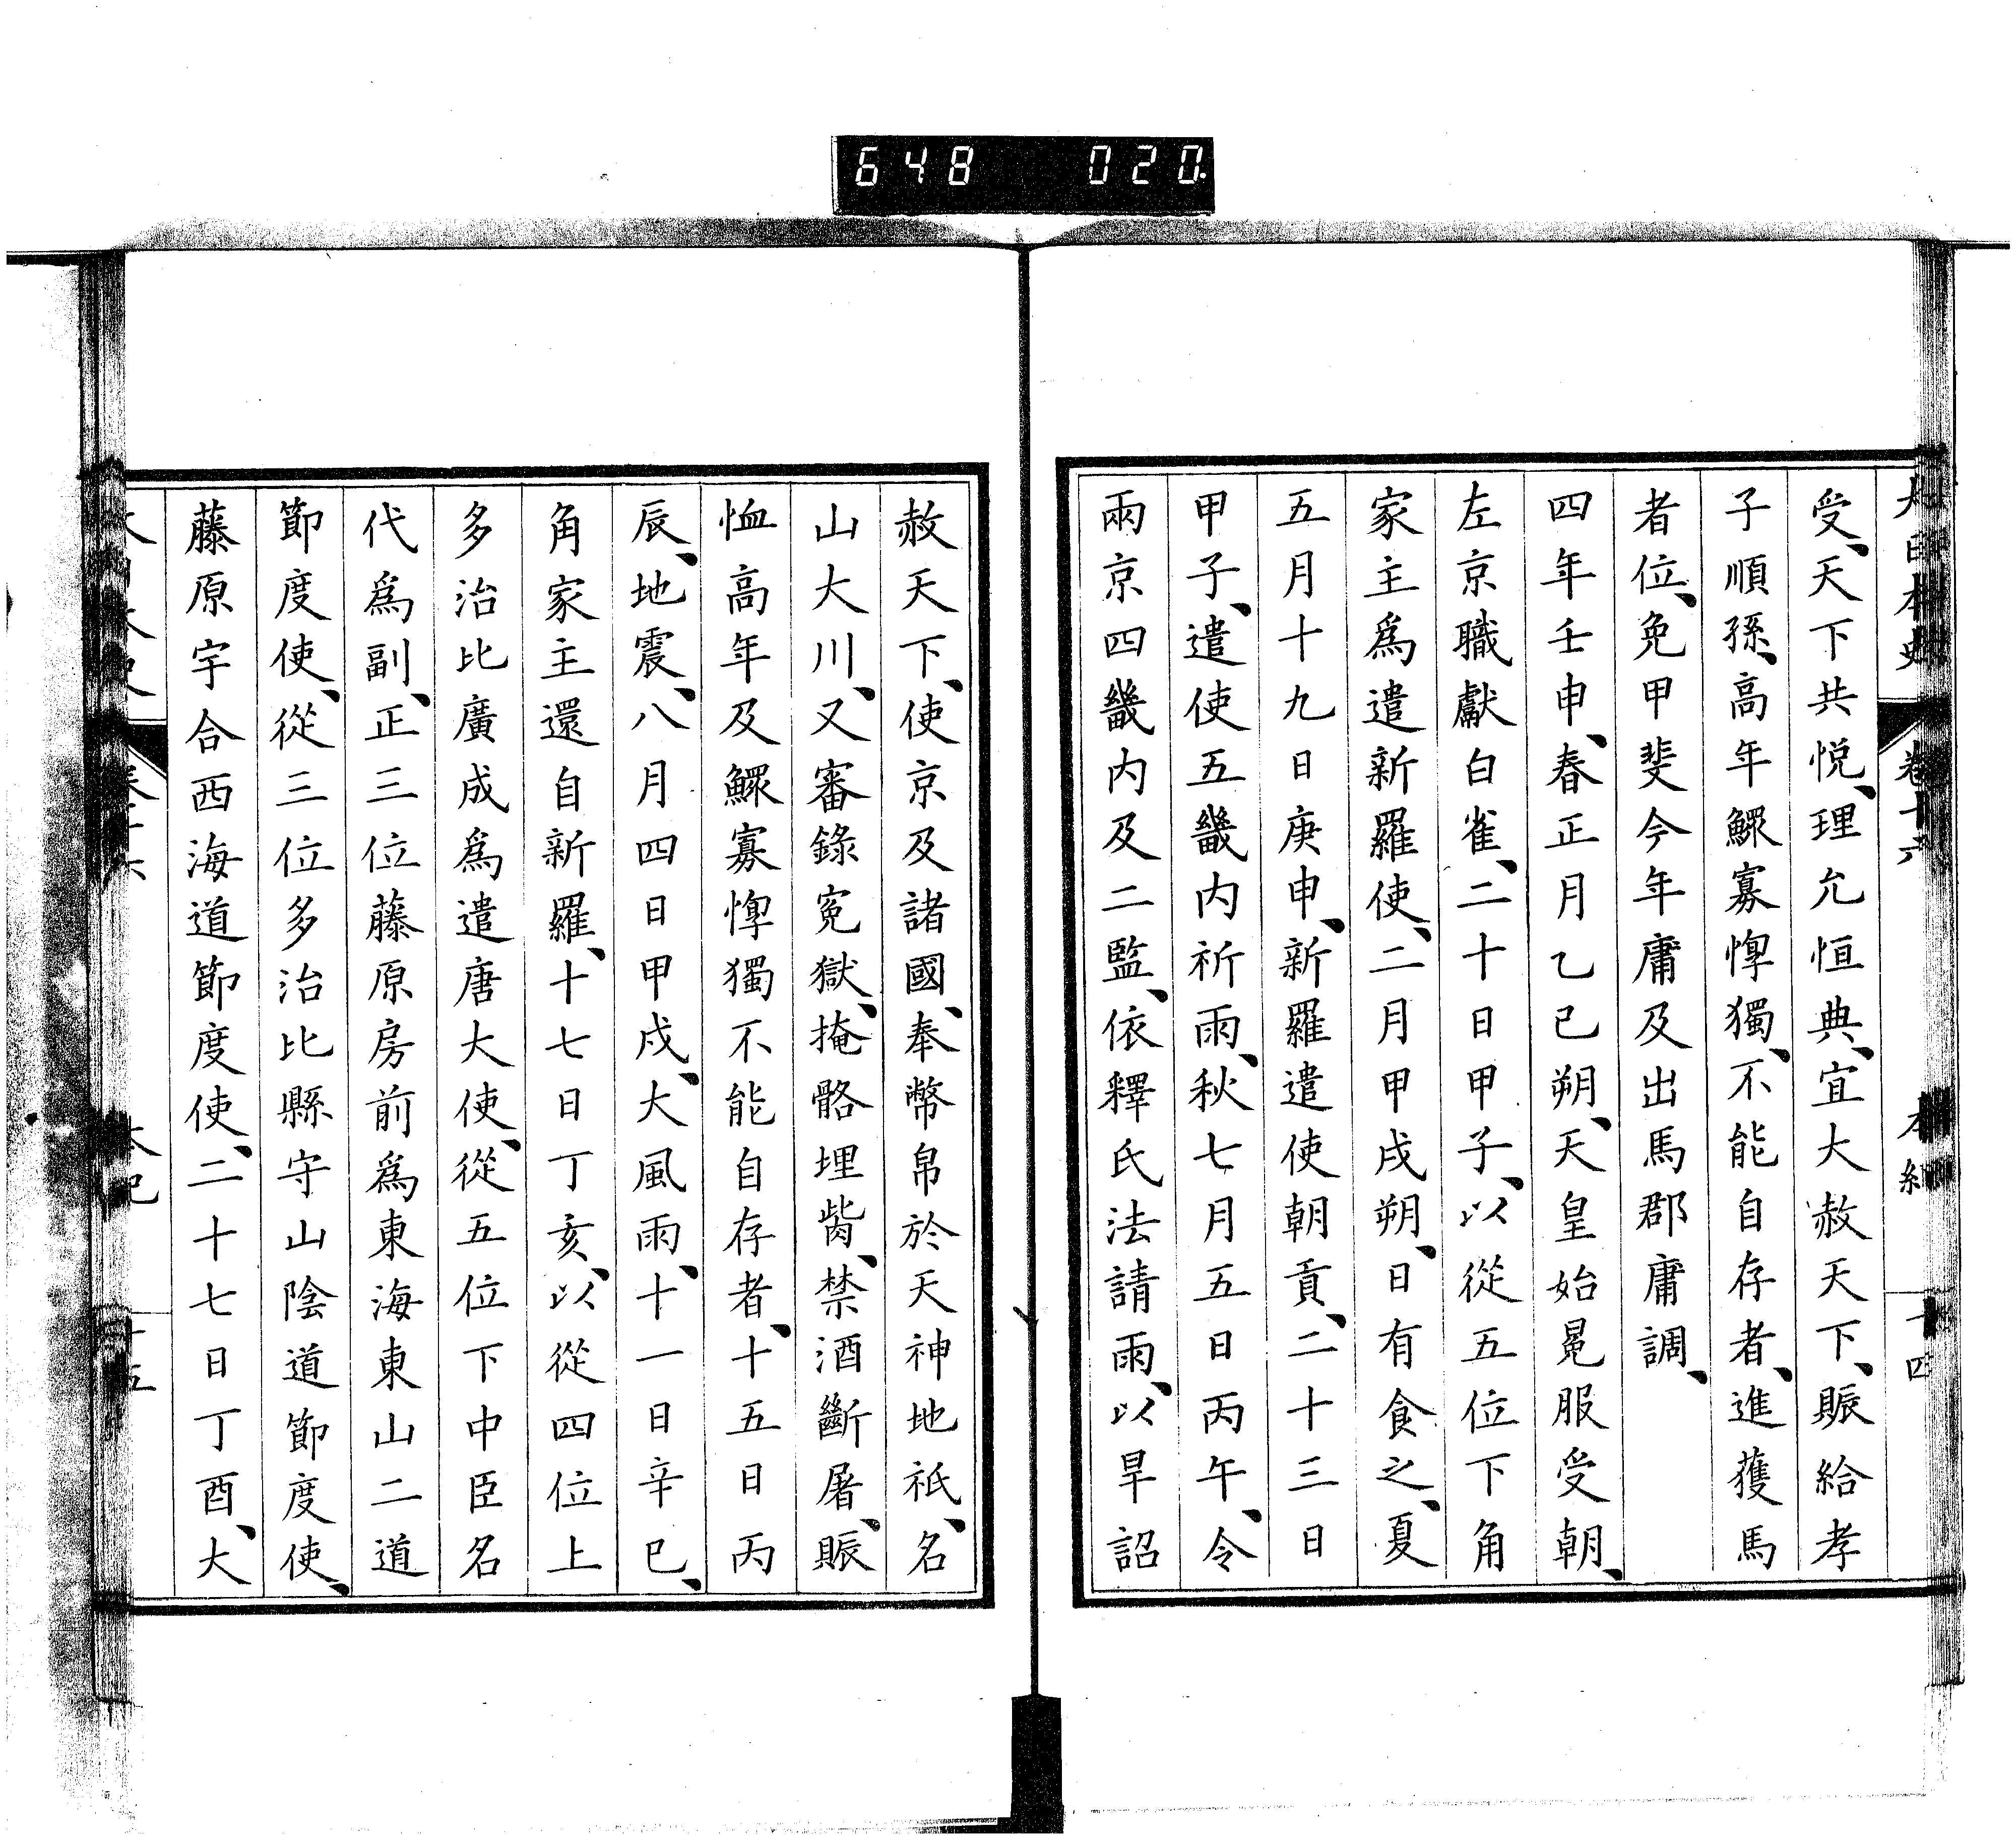 648 020
大日本史 卷十六 本紀 十四
受、天下共悦、理允恒典、宜大赦天下、賑給孝
子順孫、高年鰥寡惸獨、不能自存者、進獲馬
者位、免甲斐今年庸及出馬郡庸調、
四年壬申、春正月乙巳朔、天皇始冕服受朝、
左京職獻白雀、二十日甲子、以從五位下角
家主爲遣新羅使、二月甲戌朔、日有食之、夏
五月十九日庚申、新羅遣使朝貢、二十三日
甲子、遣使五畿内祈雨、秋七月五日丙午、令
兩京四畿内及二監、依釋氏法請雨、以旱詔
赦天下、使京及諸國、奉幣帛於天神地祇、名
山大川、又審錄寃獄、掩骼埋胔、禁酒斷屠、賑
恤高年及鰥寡惸獨不能自存者、十五日丙
辰、地震、八月四日甲戌、大風雨、十一日辛巳、
角家主還自新羅、十七日丁亥、以從四位上
多治比廣成爲遣唐大使、從五位下中臣名
代爲副、正三位藤原房前爲東海東山二道
節度使、從三位多治比縣守山陰道節度使、
藤原宇合西海道節度使、二十七日丁酉、大
本紀